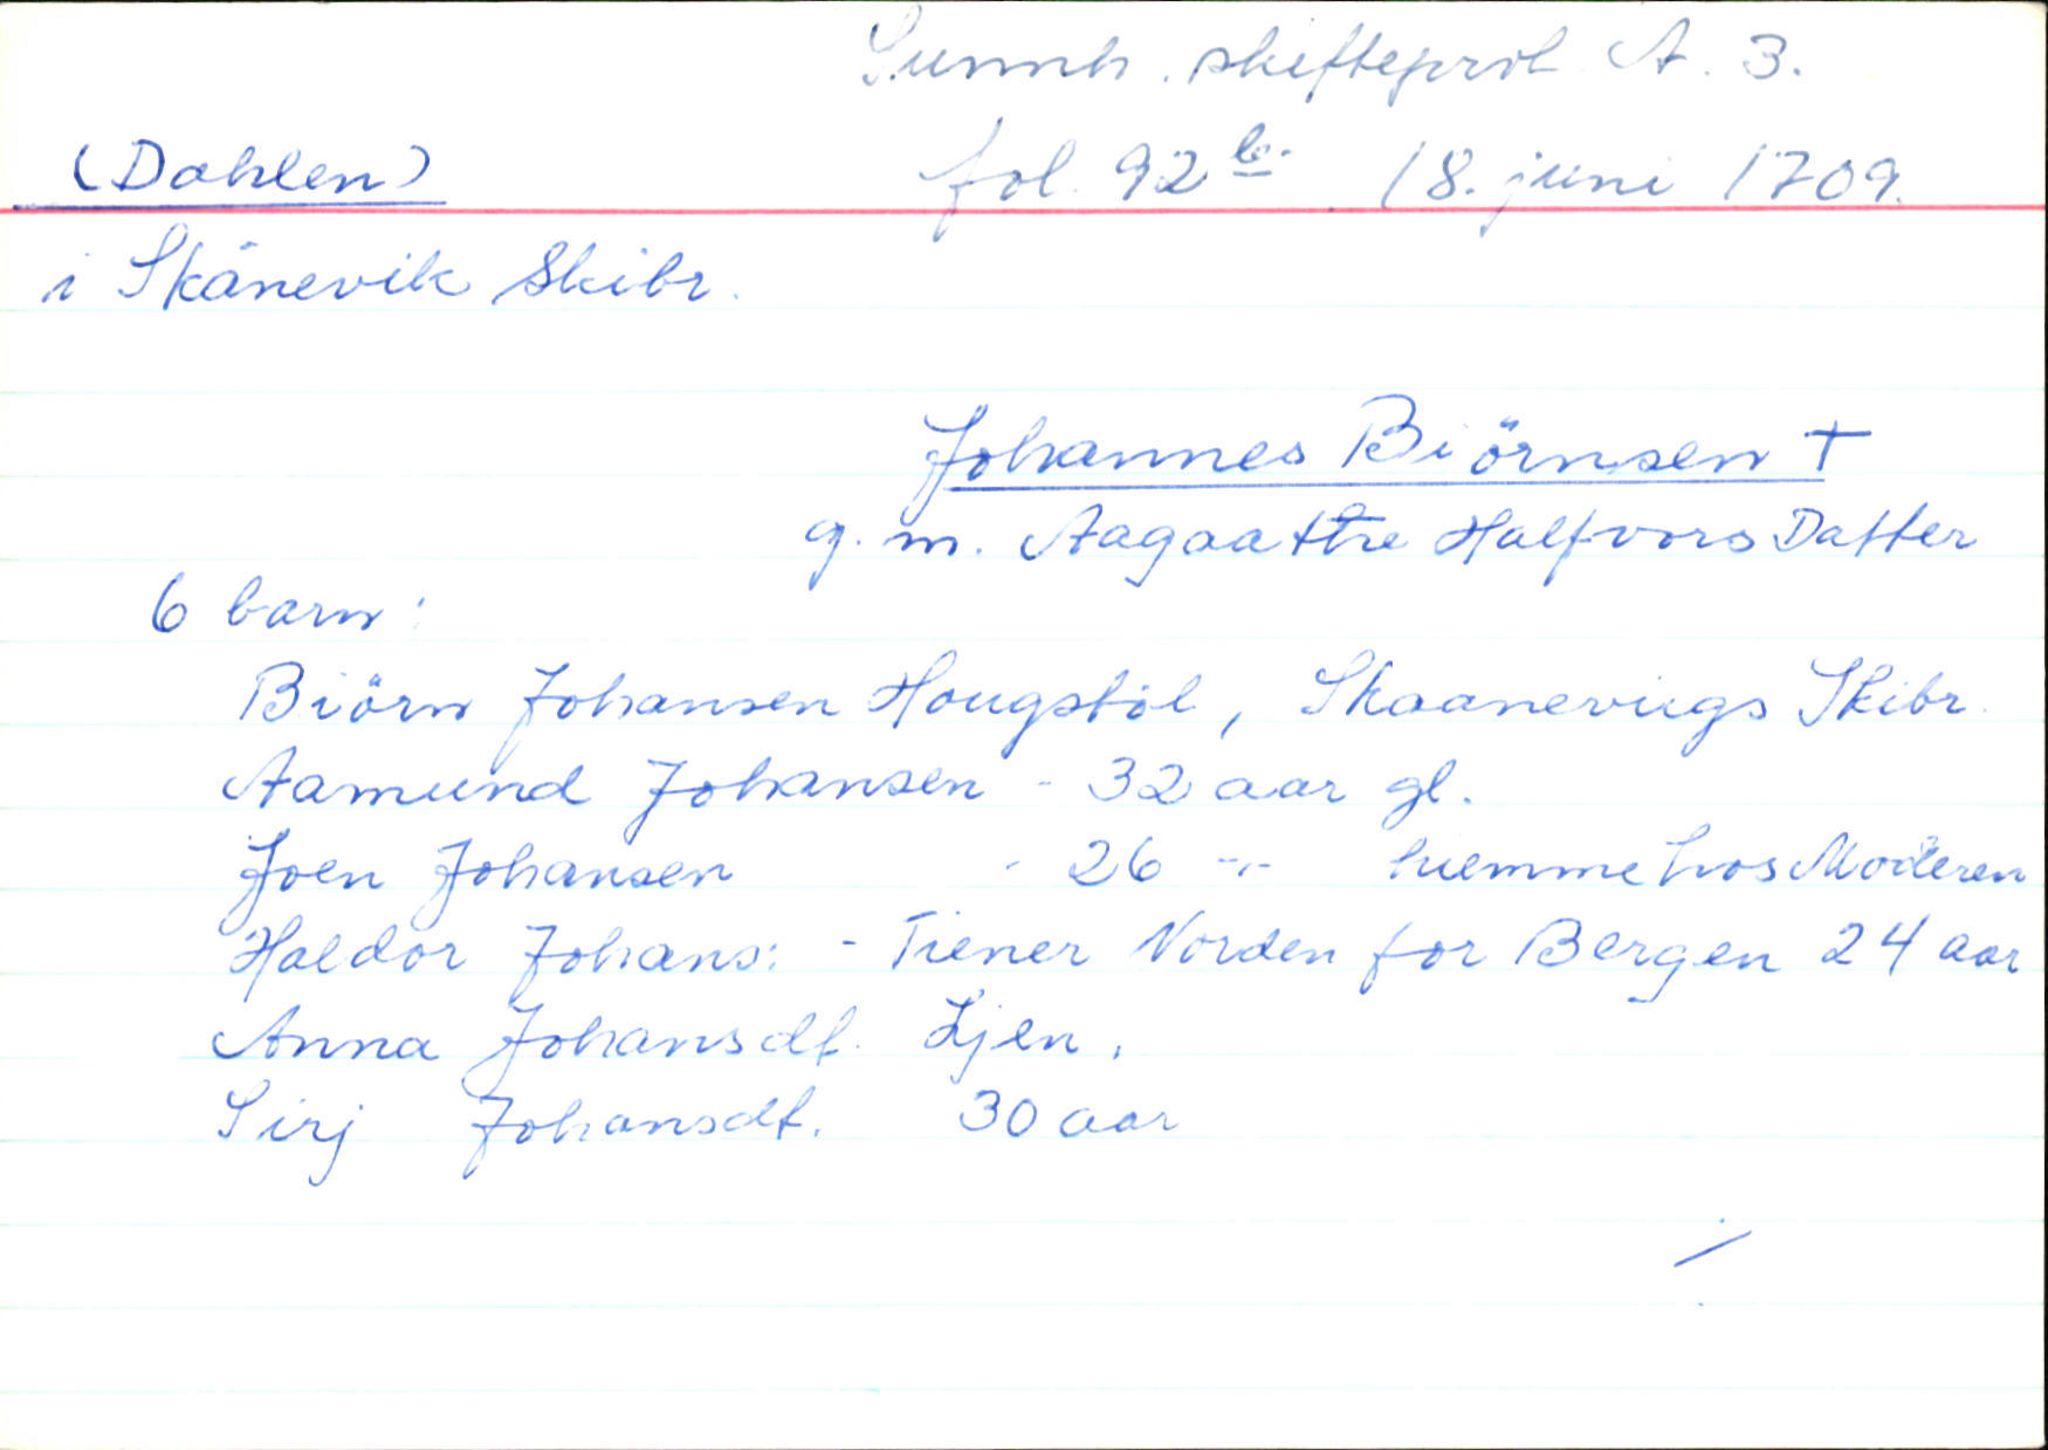 Sunnh. skifteprot A. 3.
(Dahlen) fol. 92 b. 18. juni 1709.
i Skånevik Skibr.
Johannes Biörnsen †
g. m. Aagaathe HalfvorsDatter
6 barn:
Biörn Johansen Hougstöl, Skaaneviigs Skibr.
Aamund Johansen - 32 aar gl.
Joen Johansen - 26 -"- hiemme hos Moderen
Haldor Johans: - Tiener Norden for Bergen 24 aar
Anna Johansdt. Ljen.
Sirj Johansdt. 30 aar